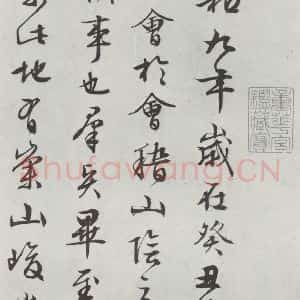 和九年歲在癸丑
會於會稽山陰之
事也羣賢畢至
此地有崇山峻
shufawang.CN